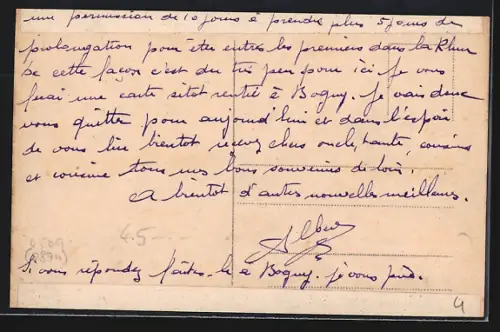 une permission de 10 jours à prendre plus 5 jours de
prolongation pour être entrés les premiers dans la Rhur
De cette façon c'est du très peu pour ici. Je vous
ferai une carte sitot rentré à Bogny. Je vais donc
vous quitter pour aujourd'hui et dans l'espoir
de vous lire bientot recevez chers oncle, tante, cousins
et cousine tous mes bons souvenirs de loin.
A bientot d'autres nouvelles meilleures.
45
Si vous répondez faites-le à Bogny. je vous prie.
4